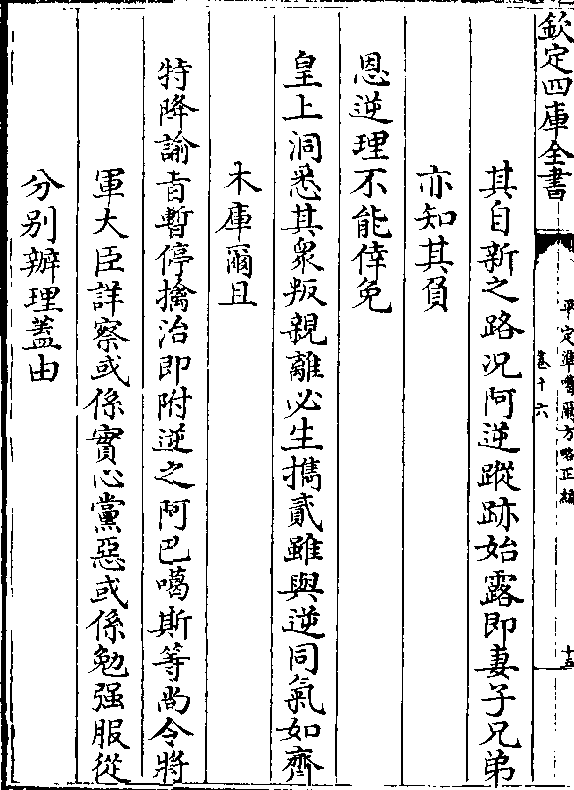 欽定四庫全書
平定準噶爾方略正編
卷十六
十五
其自新之路况阿逆蹤跡始露即妻子兄弟
亦知其負
恩逆理不能倖免
皇上洞悉其衆叛親離必生攜貳雖與逆同氣如齊
木庫爾且
特降諭旨暫停擒治即附逆之阿巴噶斯等尚令將
軍大臣詳察或係實心黨惡或係勉强服從
分别辦理蓋由